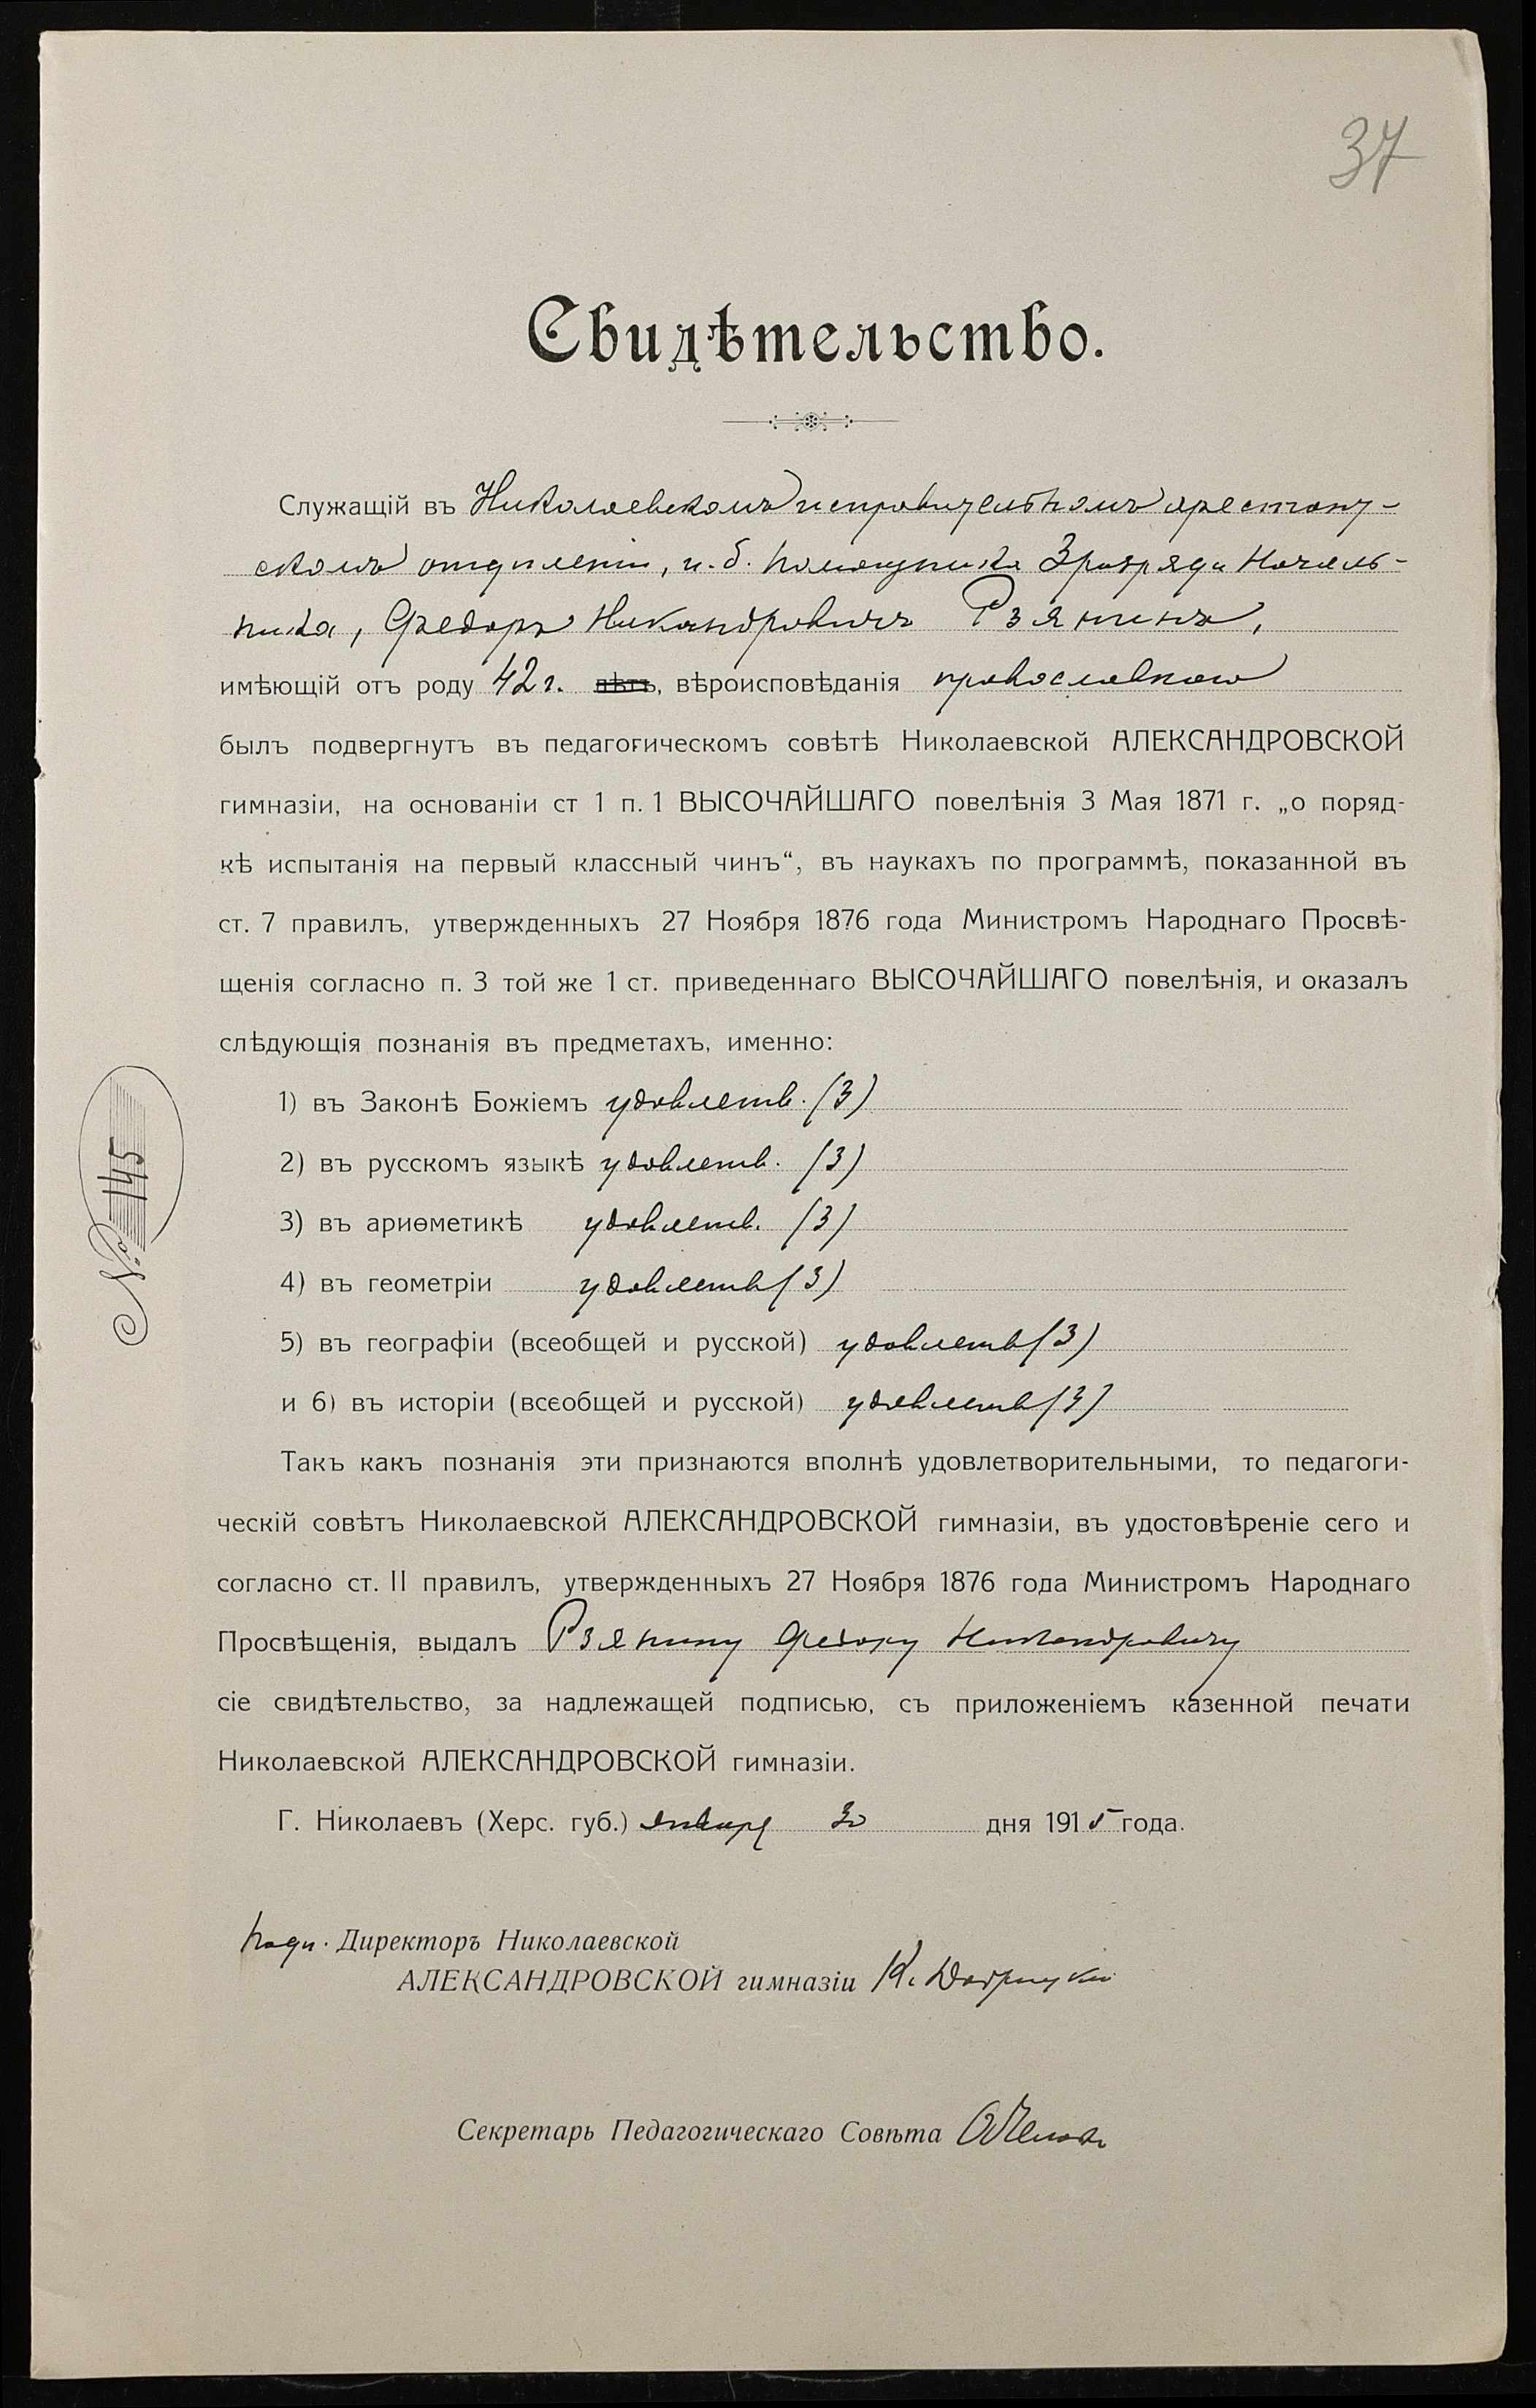 37
Свидѣтельство.
Служащій въ Николаевскомъ исправительномъ арестант-
скомъ отдѣленіи, и. б. помощника 3 разряда Началь-
ника, Федоръ Никандровичъ Рзянинъ,
имѣющій отъ роду 42 г. лѣтъ, вѣроисповѣданія православнаго
былъ подвергнутъ въ педагогическомъ совѣтѣ Николаевской АЛЕКСАНДРОВСКОЙ
гимназіи, на основаніи ст 1 п. 1 ВЫСОЧАЙШАГО повелѣнія 3 Мая 1871 г. „о поряд-
кѣ испытанія на первый классный чинъ“, въ наукахъ по программѣ, показанной въ
ст. 7 правилъ, утвержденныхъ 27 Ноября 1876 года Министромъ Народнаго Просвѣ-
щенія согласно п. 3 той же 1 ст. приведеннаго ВЫСОЧАЙШАГО повелѣнія, и оказалъ
слѣдующія познанія въ предметахъ, именно:
1) въ Законѣ Божіемъ удовлетв. (3)
2) въ русскомъ языкѣ удовлетв. (3)
3) въ ариѳметикѣ удовлетв. (3)
4) въ геометріи удовлетв (3)
5) въ географіи (всеобщей и русской) удовлетв (3)
и 6) въ исторіи (всеобщей и русской) удовлетв (3)
№ 145
Такъ какъ познанія эти признаются вполнѣ удовлетворительными, то педагоги-
ческій совѣтъ Николаевской АЛЕКСАНДРОВСКОЙ гимназіи, въ удостовѣреніе сего и
согласно ст. II правилъ, утвержденныхъ 27 Ноября 1876 года Министромъ Народнаго
Просвѣщенія, выдалъ Рзянину Федору Никандровичу
сіе свидѣтельство, за надлежащей подписью, съ приложеніемъ казенной печати
Николаевской АЛЕКСАНДРОВСКОЙ гимназіи.
Г. Николаевъ (Херс. губ.) января 30 дня 1915 года.
Подп. Директоръ Николаевской
АЛЕКСАНДРОВСКОЙ гимназіи К.
Секретарь Педагогическаго Совѣта